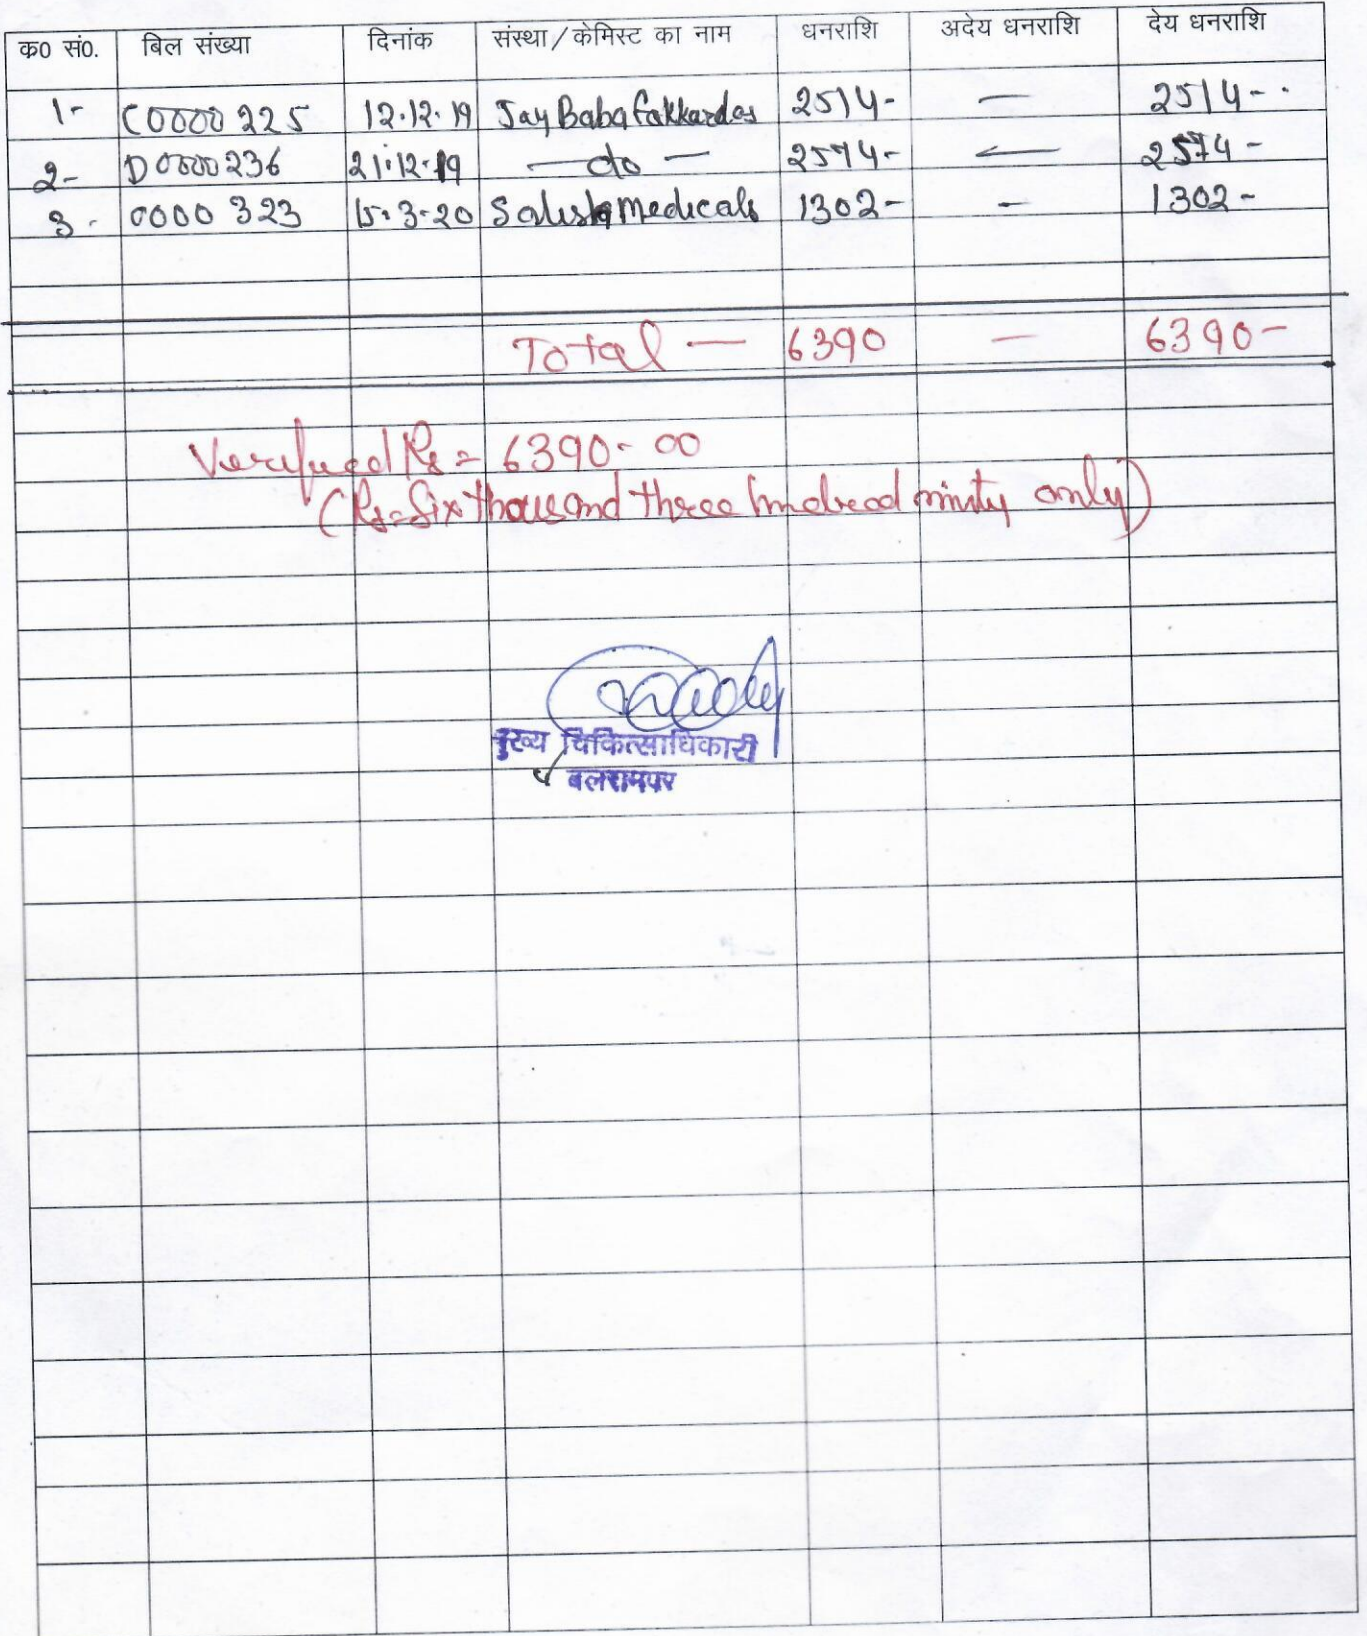 क० सं०. बिल संख्या दिनांक संस्था/केमिस्ट का नाम धनराशि अदेय धनराशि देय धनराशि
1- C0000225 12.12.19 Jay Baba fakkardas 2514- — 2514-
2- D0000236 21.12.19 — do — 2574- — 2574-
3- 0000 323 15.3-20 Medicals 1302- - 1302-
Total — 6390 — 6390-
Verified Rs = 6390-00
(Rs=Six thousand three hundred ninty only)
मुख्य चिकित्साधिकारी
बलरामपुर